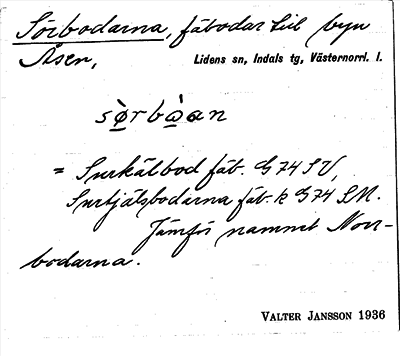 Sörbodarna, fäbodar till byn
Åsen, Lidens sn, Indals tg, Västernorrl. l.
sø̀rbὰan
= Surkälbod fäb. G74 SV,
Surtjälsbodarna fäb. k G74 SV.
Jämför namnet Norr-
bodarna.
VALTER JANSSON 1936